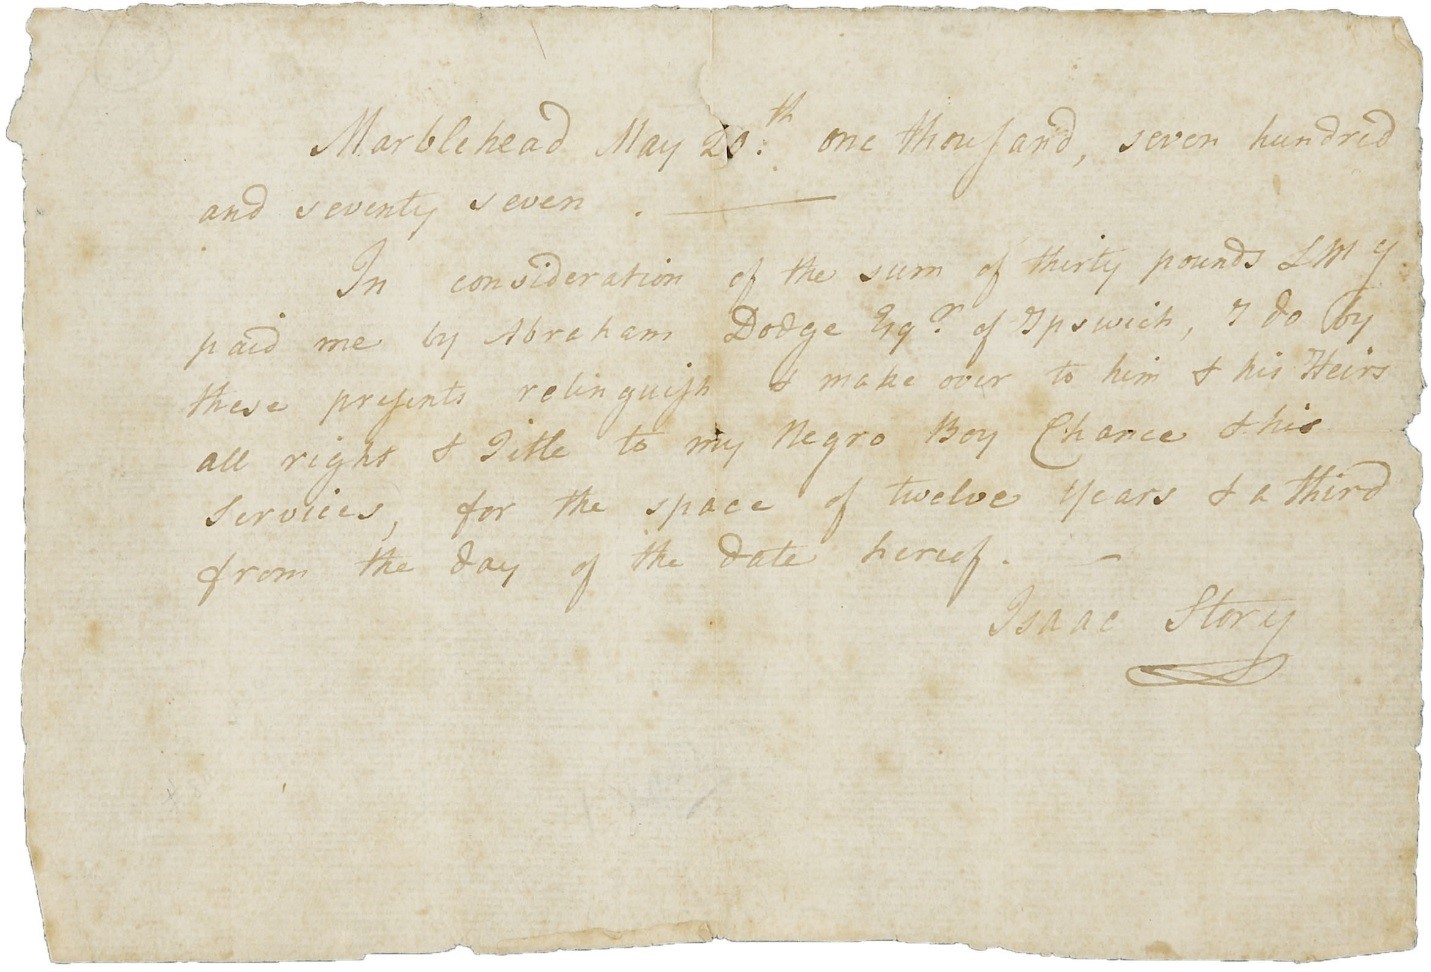 Marblehead May 20.th one thousand, seven hundred
and seventy seven.
In consideration of the sum of thirty pounds L M y
paid me by Abraham Dodge Esqr. of Ipswich, I do by
these presents relinquish & make over to him & his Heirs
all right & Title to my Negro Boy Chance & his
services, for the space of twelve years & a third
from the day of the date hereof.
Isaac Story